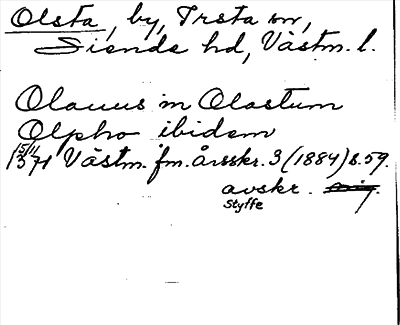 Olsta, by, Irsta sn,
Siende hd, Västm. l.
Olauus in Olastum
Olpho ibidem
15/11 1371 Västm. fm. årsskr. 3 (1884) s. 59.
avskr.
Styffe